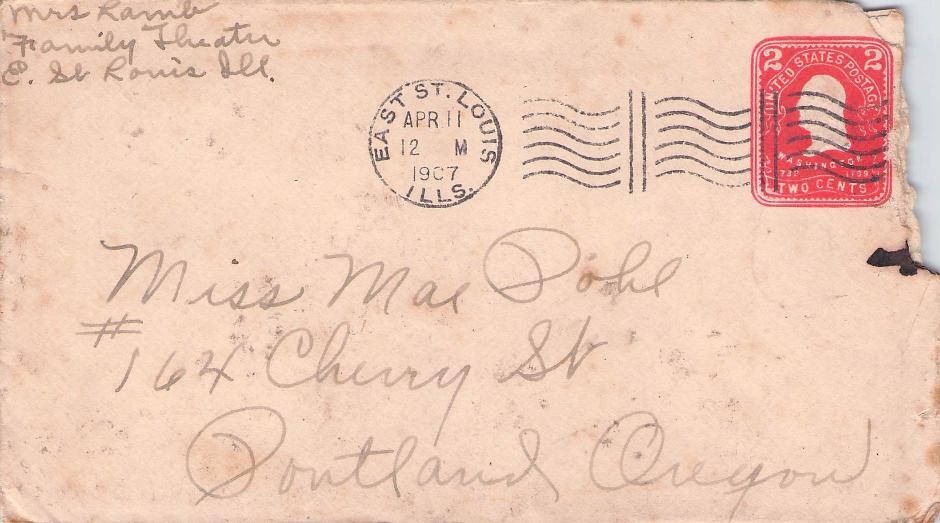 Mrs Lamb
Family Theater
E. St Louis Ill.
EAST ST. LOUIS
APR 11
12 M
1907
ILLS.
2 2
UNITED STATES POSTAGE
WASHINGTON
1732 1799
TWO CENTS
Miss Mae Pohl
#
164 Cherry St
Portland Oregon